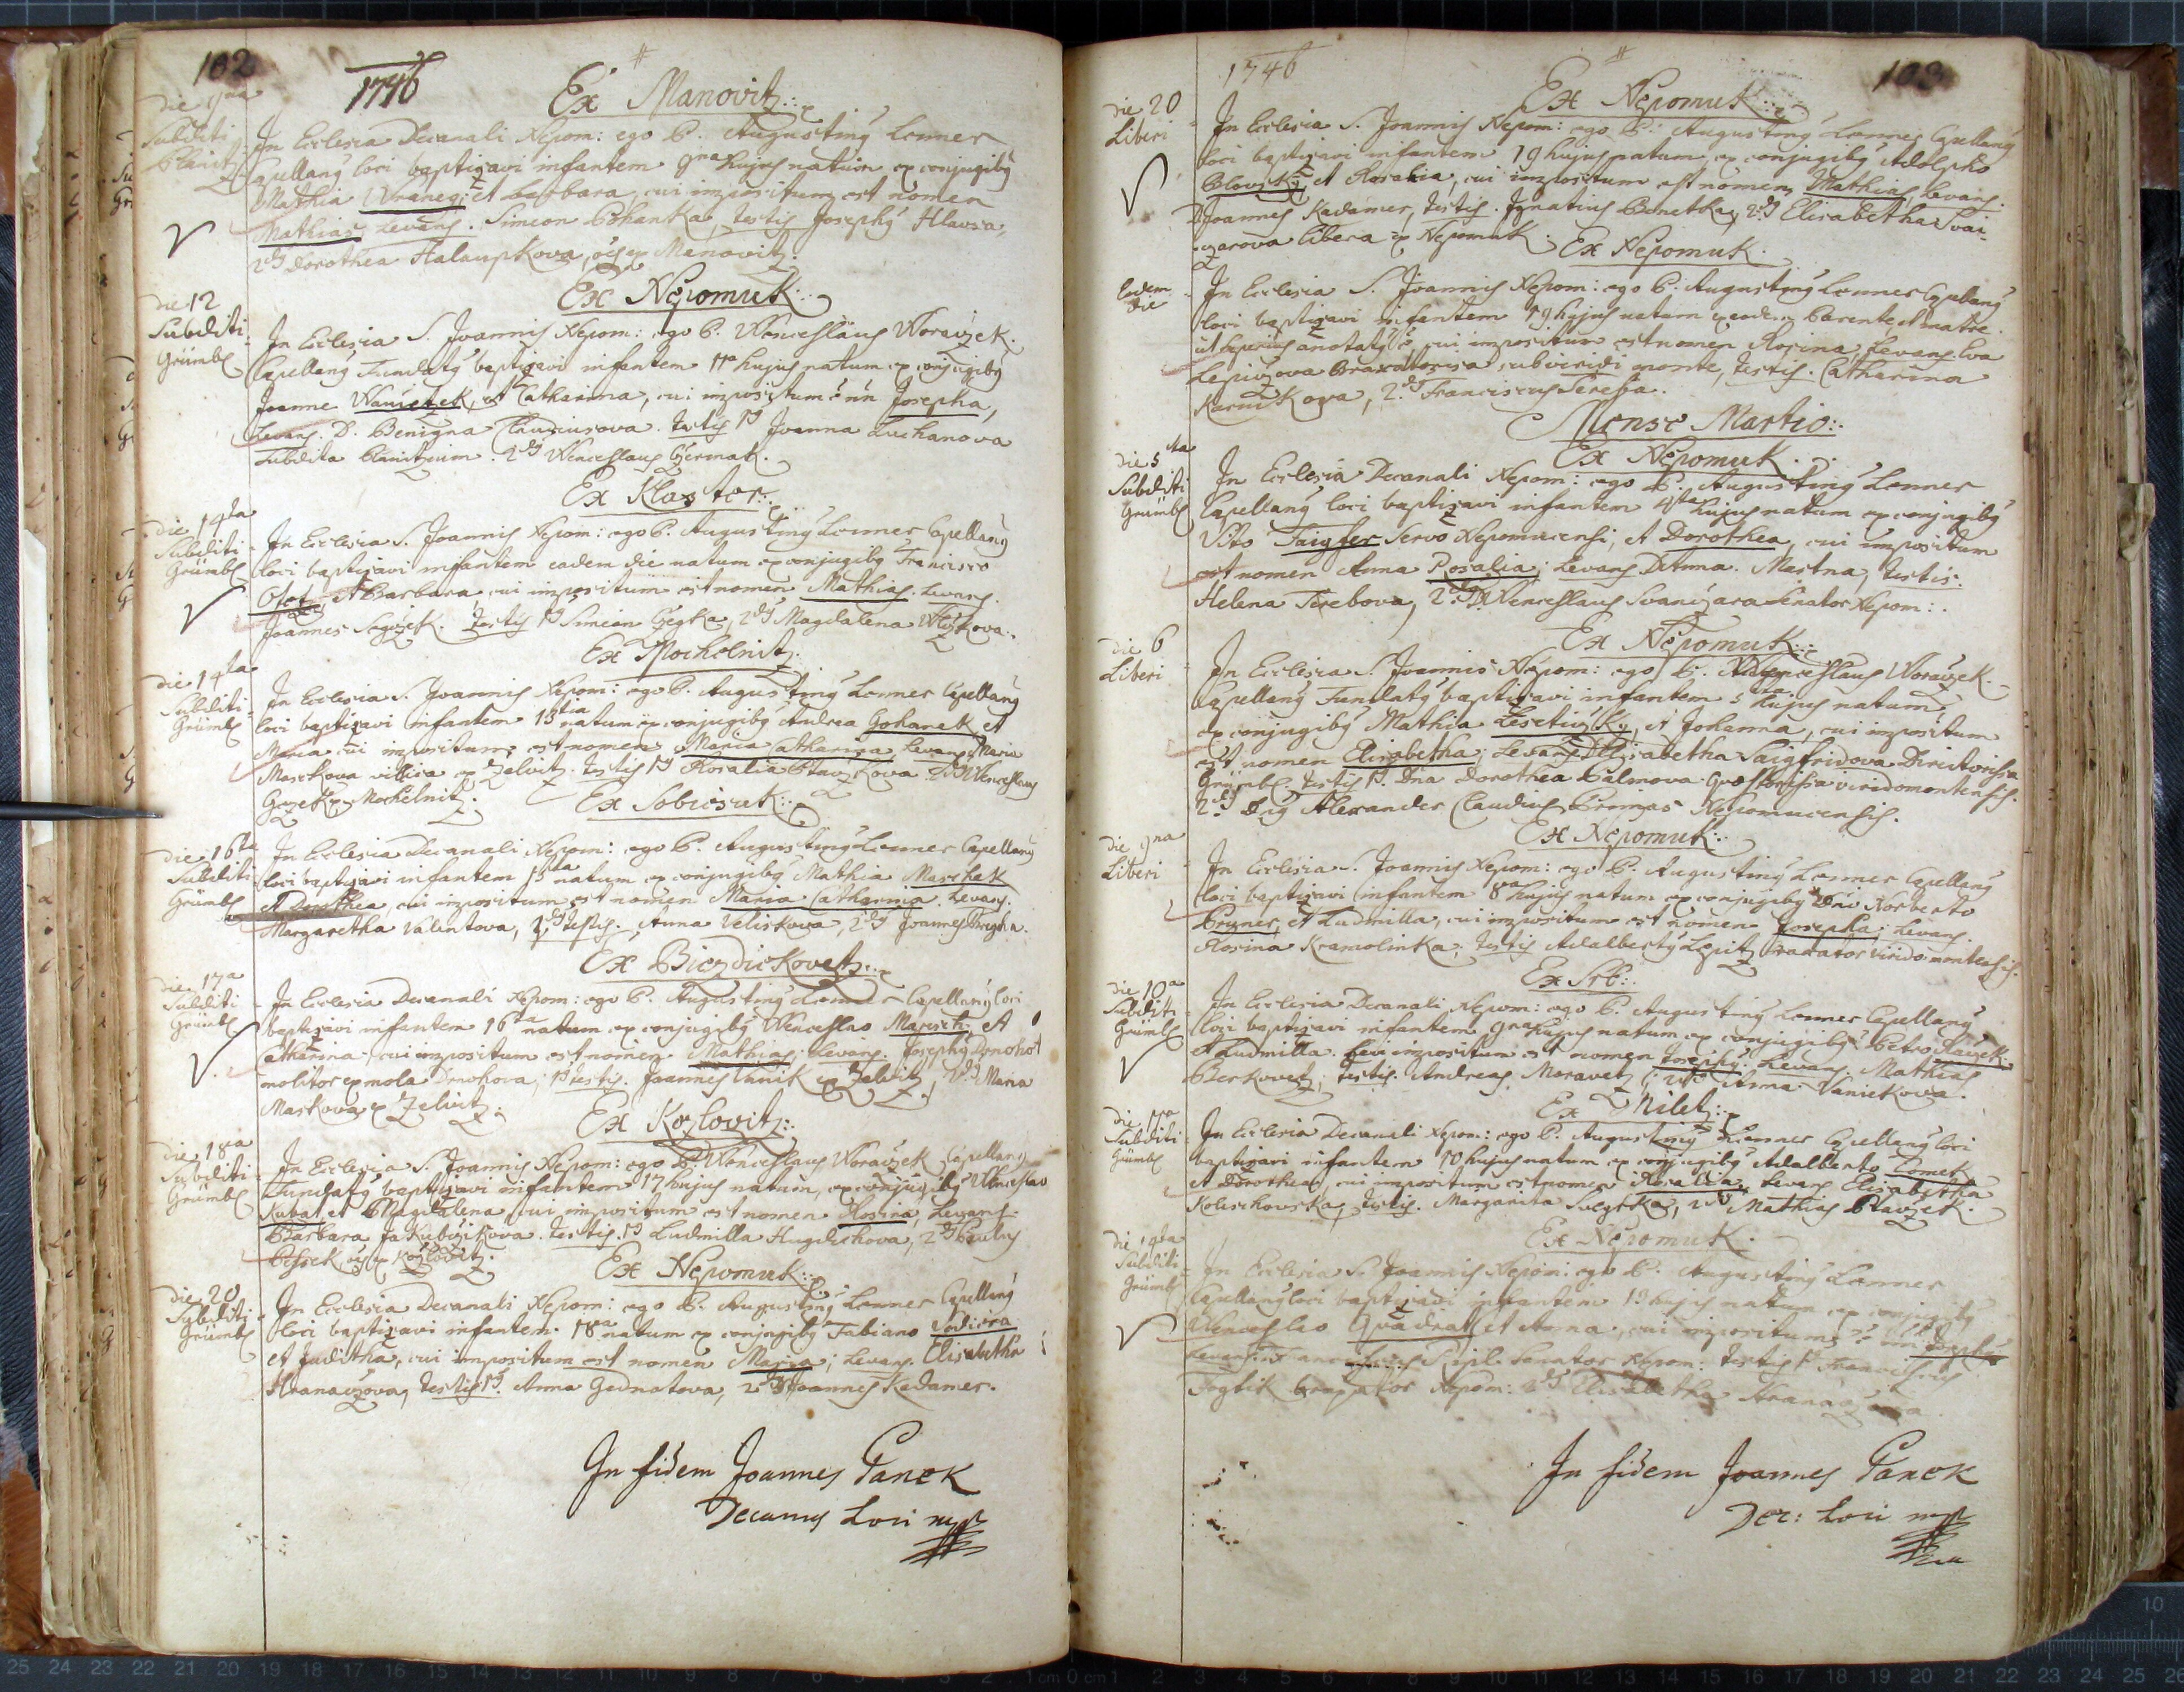 102
1746
Ex Manovitz
die 9na
Subditi
Planitz
In Ecclesia Decanali Nepom: ego P. Augustinq Lenner
Capellanq loci baptizavi infantem 9na hujus natum ex conjugibq
Mathia et Barbara, cui impositum est nomen
Mathias, Levans. Simeon Pohanka, testis Josephq Hlavsa,
2dq Dorothea Halaupkova, oes ex Manovitz.
Ex Nepomuk
die 12
Subditi
Grümb
In Ecclesia S. Joannis Nepom: ego P. Wenceslaus Woraczek
Capellanq Fundatq baptizavi infantem 11a hujus natum ex conjugibq
Joanne Waniczek, et Catharina, cui impositum è nn Josepha,
Levans. D. Benigna Claudiusova. testis 1q Joanna Luchanova
Subdita Planitzium. 2dq Wenceslaus Czermak.
Ex Klaster
die 14ta
Subditi
Grümb
In Ecclesia S. Joannis Nepom: ego P. Augustinq Lenner Capellanq
loci baptizavi infantem eadem die natum ex conjugibq Francisco
et Barbara cui impositum est nomen Mathias. Levans.
Joannes . testis 1q Simeon Czegka, 2dq Magdalena
Ex Mocholnitz.
die 14ta
Subditi
Grümb
In Ecclesia S. Joannis Nepom: ego P. Augustinq Lenner Capellanq
loci baptizavi infantem 13tia natum ex conjugibq Andrea Gohanek et
Maria cui impositum est nomen Maria Catharina Levans Maria
Maskova villica ex Zelvitz. testis 1q Rosalia . 2dq Wenceslaus
ex Mochelnitz.
Ex Sobiesuk
die 16ta
Subditi
Grümb
In Ecclesia Decanali Nepom: ego P. Augustinq Lenner Capellanq
loci baptizavi infantem 15ta natum ex conjugibq Mathia Maschek
et Dorothea, cui impositum est nomen Maria Catharina. Levans.
Margaretha Valentova, 1q testis. Anna Veliskova, 2dq Joannes
Ex Biezdiekovetz
die 17a
Subditi
Grümb
In Ecclesia Decanali Nepom: ego P. Augustinq Lenner Capellanq loci
baptizavi infantem 16ta natum ex conjugibq Wenceslao Maresch, et
Catharina, cui impositum est nomen Mathias; Levans. Josephq
molitor ex mola Drnohova; 1q testis. Joannes ex Zelvitz, 2dq Maria
Maskova ex Zelvitz.
Ex Kozlovitz
die 18va
Subditi
Grümb
In Ecclesia S. Joannis Nepom: ego P. Wenceslaus Woraczek Capellanq
Fundatq baptizavi infantem 17 hujus natum, ex conjugibq Wenceslao
Kubat et Magdalena cui impositum est nomen Rosina, Levans.
Barbara Jakubczikova. testis. 1q Ludmilla Hugdichova, 2dq Paulus
oes ex Kozlovitz.
Ex Nepomuk
die 20
Subditi
Grümb
In Ecclesia Decanali Nepom: ego P. Augustinq Lenner Capellanq
loci baptizavi infantem 18va natum ex conjugibq Fabiano Vodicza
et Juditha, cui impositum est nomen Maria; Levans. Elisabetha
Hranaczova, testis 1q. Anna Gednatova, 2dq Joannes Kadamer.
In fidem Joannes Panek
Decanus Loci mp
1746
103
Ex Nepomuk
die 20
Liberi
In Ecclesia S. Joannis Nepom: ego P. Augustinq Lenner Capellanq
loci baptizavi infantem 19 hujus natum ex conjugibq Adolpho
et Rosalia, cui impositum est nomen, Mathias, Levans.
D. Joannes Kadamer, testis. Ignatius Benetka, 2dq Elisabetha Svai-
czarova libera ex Nepomuk.
Ex Nepomuk.
Eadem
die
In Ecclesia S. Joannis Nepom: ego P. Augustinq Lenner Capellanq
loci baptizavi infantem 19 hujus natum ex eodem Parente et matre
ut superius anotatq, cui impositum est nomen Rosina, Levans. Eva
Lepiczova Braxatorissa sub viridi monte, testis. Catharina
, 2dq Franciscus .
Mense Martio
Ex Nepomuk
die 5ta
Subditi
Grümb
In Ecclesia Decanali Nepom: ego P. Augustinq Lenner
Capellanq loci baptizavi infantem 4ta hujus natum ex conjugibq
Vito Servo Nepomucensi, et Dorothea, cui impositum
est nomen Anna Rosalia; Levans D. Anna Mastna, testis.
Helena Terebova, 2dq Wenceslaus Senator Nepom:
Ex Nepomuk
die 6
Liberi
In Ecclesia S. Joannis Nepom: ego P. Wenceslaus Woraczek
Capellanq Fundatq baptizavi infantem 5ta hujus natum
ex conjugibq Mathia et Johanna, cui impositum
est nomen Elisabetha; Levans D. Elisabetha Saigfridova Directorissa
Grümb. testis 1q. Dna Dorothea Palmova Quaestorissa viridomontensis.
2dq Dnq Alexander Claudius Primas Nepomucensis.
Ex Nepomuk
die 9na
Liberi
In Ecclesia S. Joannis Nepom: ego P. Augustinq Lenner Capellanq
loci baptizavi infantem 8va hujus natum ex conjugibq Dno Norberto
Pruner, et Ludmilla, cui impositum est nomen Josepha; Levans.
Rosina Kramolinka, testis Adalbertq Lepitz viridomontensis.
Ex Srb
die 10a
Subditi
Grümb
In Ecclesia Decanali Nepom: ego P. Augustinq Lenner Capellanq
loci baptizavi infantem 9na hujus natum ex conjugibq Petro
et Ludmilla. cui impositum est nomen Josephq. Levans. Mathias
Berkovetz, testis. Andreas Moravetz, 2dq Anna Vanietkova.
die 11a
Subditi
Grümb
In Ecclesia Decanali Nepom: ego P. Augustinq Lenner Capellanq loci
baptizavi infantem 10 hujus natum ex conjugibq Adalberto Tomek
et Dorothea, cui impositum est nomen Rosalia, Levans Elisabetha
Koleschovska, testis. Margarita , 2dq Mathias
Ex Nepomuk.
die 14ta
Subditi
Grümb
In Ecclesia S. Joannis Nepom: ego P. Augustinq Lenner
Capellanq loci baptizavi infantem 13 hujus natum ex conjugibq
Wenceslao Quadrat et Anna, cui impositum è nn Josephq
Levans. Senator Nepom: testis 1q Franciscus
Nepom: 2dq Elisabetha
In fidem Joannes Panek
Dec: Loci mp